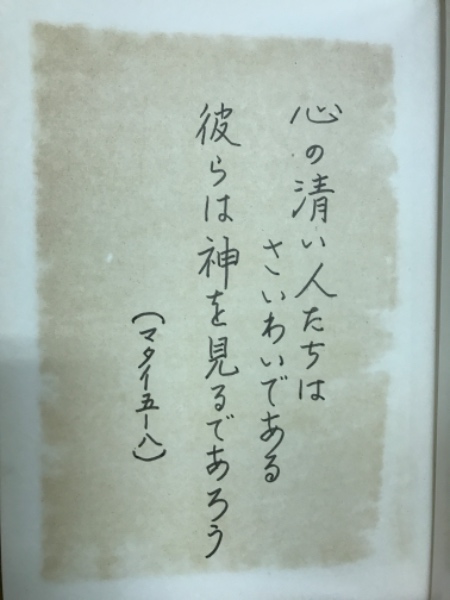 心の清い人たちは
さいわいである
彼らは神を見るであろう
(マタイ五ー八)